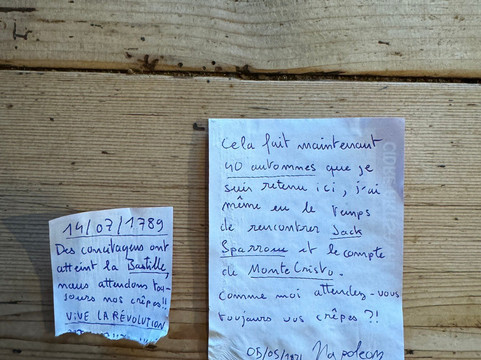 14/07/1789
Des concitoyens ont
atteint la Bastille,
nous attendons tou-
jours nos crêpes!!
VIVE LA RÉVOLUTION
Cela fait maintenant
40 automnes que je
suis retenu ici, j'ai
même eu le temps
de rencontrer Jack
Sparrow et le compte
de Monte Cristo.
Comme moi attendez-vous
toujours vos crêpes ?!
Napoleon